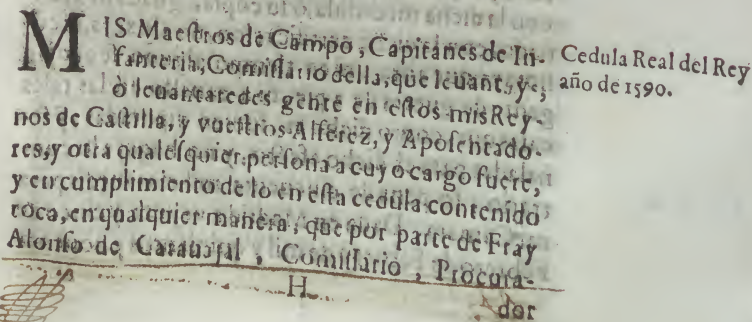 MIS Maestros de Campo, Capitanes de In-
fanteria, Comissario della, que leuantays,
ò leuantaredes gente en estos mis Rey-
nos de Castilla, y vuestros Alferez, y Aposentado-
res, y otra qualesquier persona a cuyo cargo fuere,
y en cumplimiento de lo en esta cedula contenido
toca, en qualquier manera, que por parte de Fray
Alonso de Carauajal, Comissario, Procura-
H
dor
Cedula Real del Rey
año de 1590.